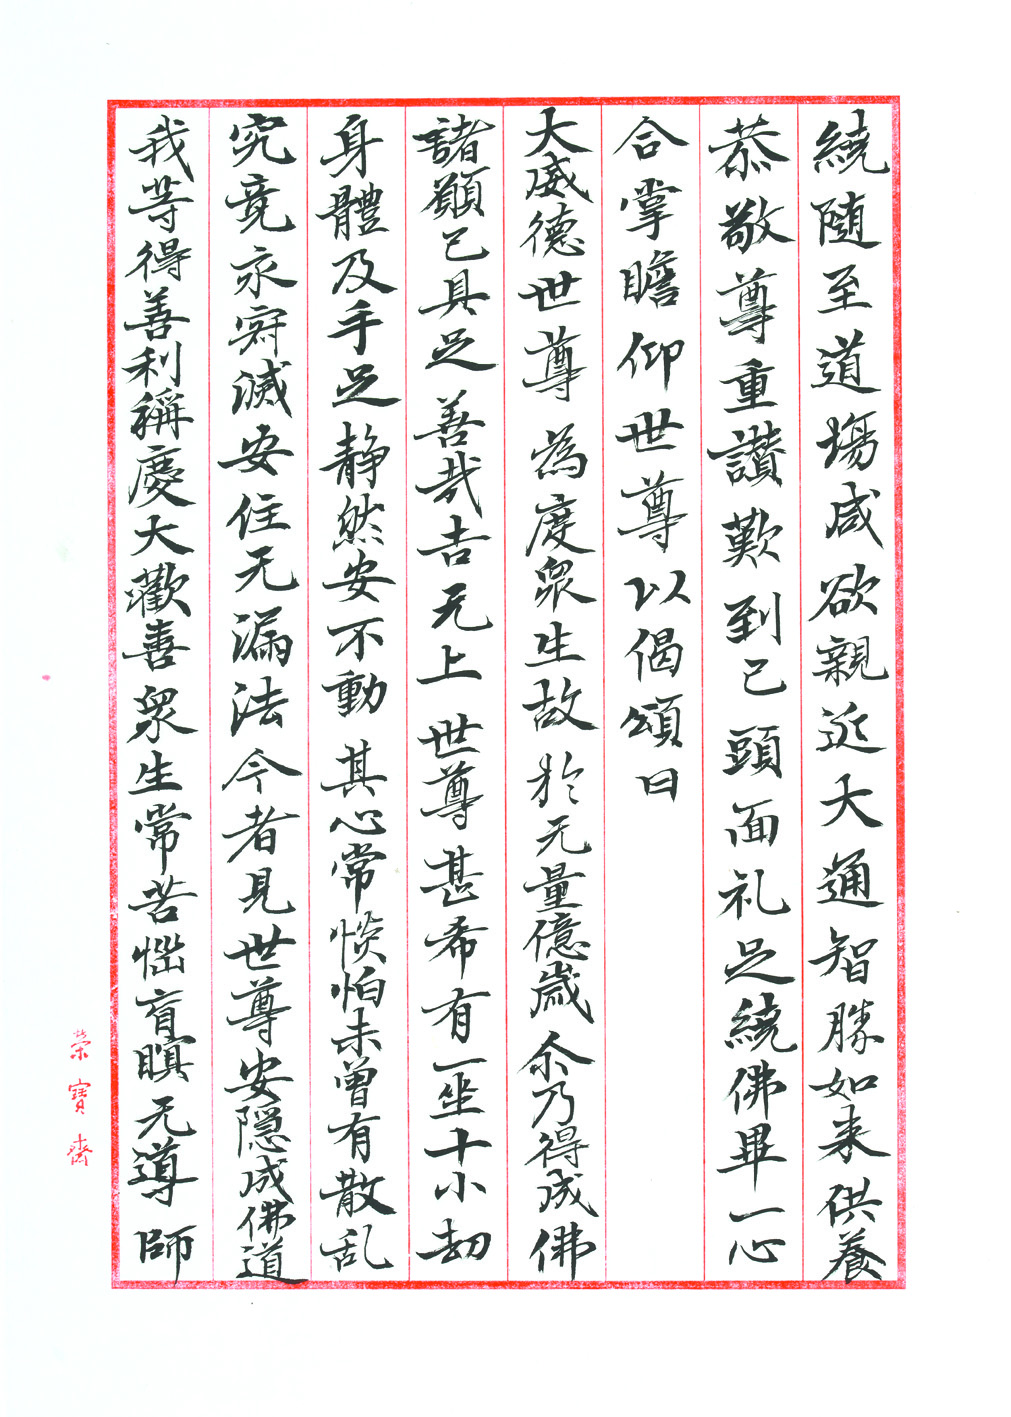 繞隨至道場咸欲親近大通智勝如来供養
恭敬尊重讃歎到已頭面礼足繞佛畢一心
合掌瞻仰世尊以偈頌曰
大威德世尊 為度衆生故 於无量億歳 尒乃得成佛
諸願已具足 善哉吉无上 世尊甚希有 一坐十小劫
身體及手足 静然安不動 其心常惔怕 未曽有散乱
究竟永寂滅 安住无漏法 今者見世尊 安隠成佛道
我等得善利 稱慶大歡喜 衆生常苦惱 盲瞑无導師
榮寳齋